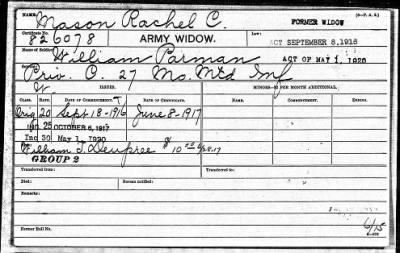 NAME: Mason Rachel C. FORMER WIDOW (3-P. A. S.)
Certificate No. 826078 ARMY WIDOW. ACT SEPTEMBER 8, 1916
William Parman ACT OF MAY 1, 1920
Service: Priv. C. 27 Mo. Mtd Inf
W. ISSUES. MINORS—$2 PER MONTH ADDITIONAL.
CLASS. RATE. DATE OF COMMENCEMENT. DATE OF CERTIFICATE. RATE. COMMENCEMENT. ENDING.
Orig 20 Sept 18-1916 June 8-1917
INC. 25 OCTOBER 6, 1917
INC 30 MAY 1, 1920
William T. Dempree
GROUP 2
Transferred from: Transferred to:
Died: Bureau notified:
Remarks:
Former Roll No.